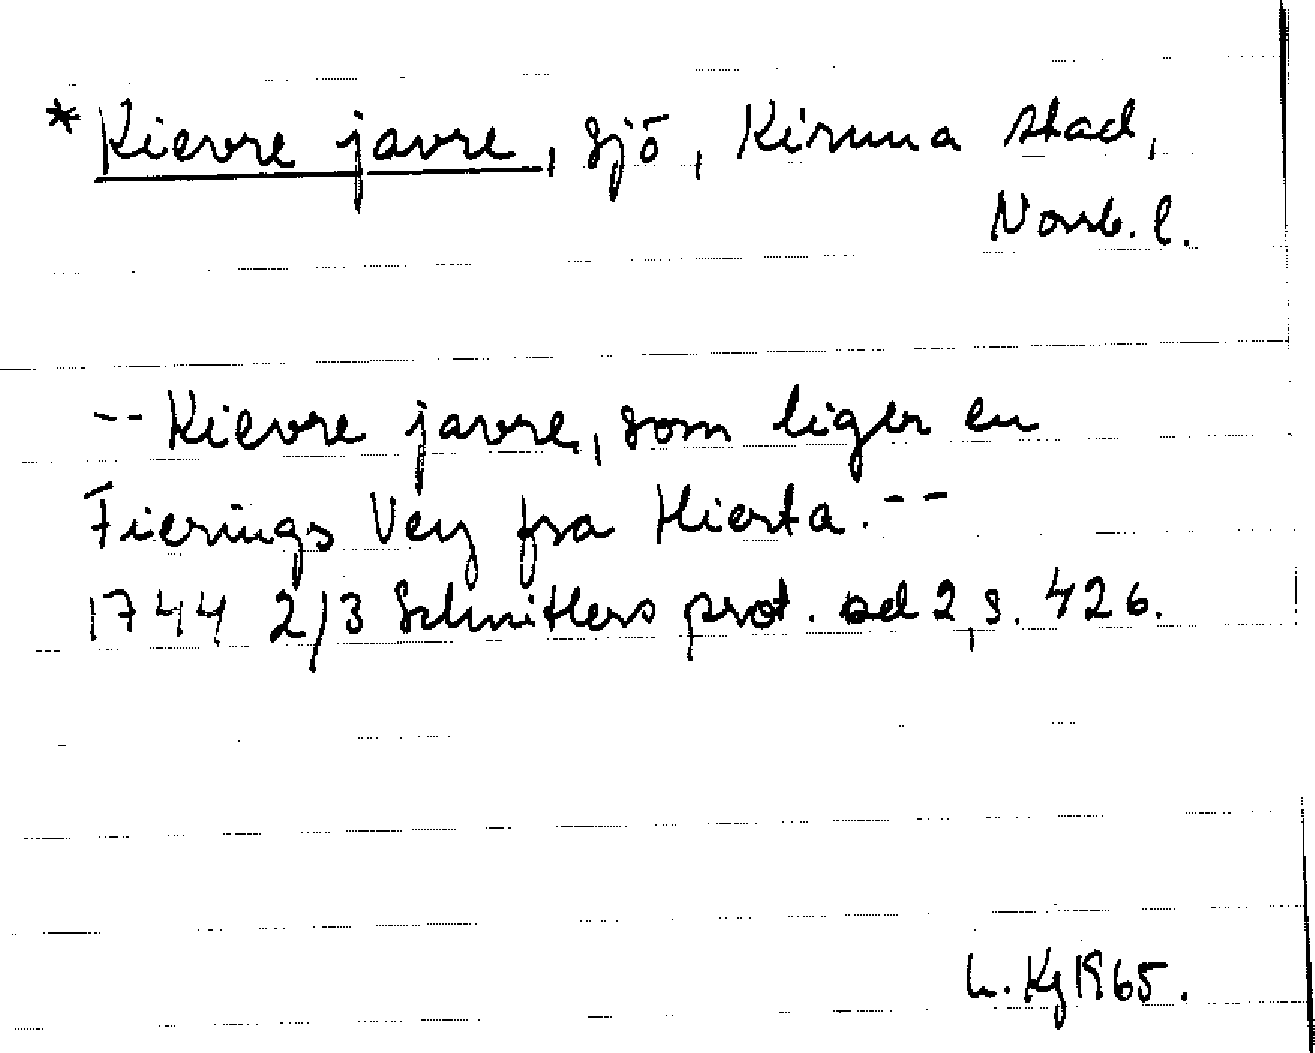 * Kievre javre, sjö, Kiruna stad,
Norrb. l.
-- Kievre javre, som liger en
Fierings Vey fra Hierta. --
1744 2/3 Schnitlers prot. bd 2, s. 426.
L. Kg 1965.